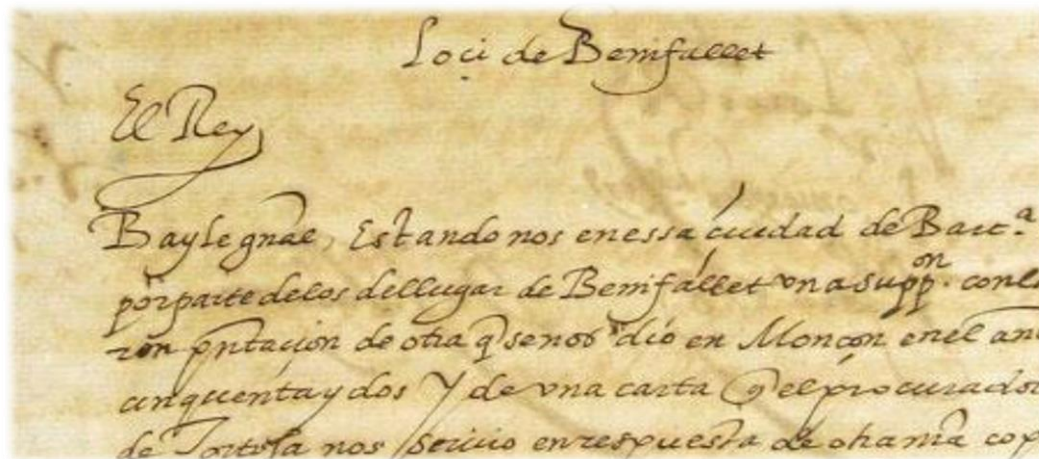 Loci de Benifallet
El Rey
Bayle gnãe, Estando nos en essa ciudad de Barc.ª
por parte de los del lugar de Benifallet vna supp.on con
pntacion de otra q̃ se nos dio en Monçon en el
cinquenta y dos Y de vna carta q̃ el procurador
de Tortosa nos scriuio en respuesta de otra nr̃a